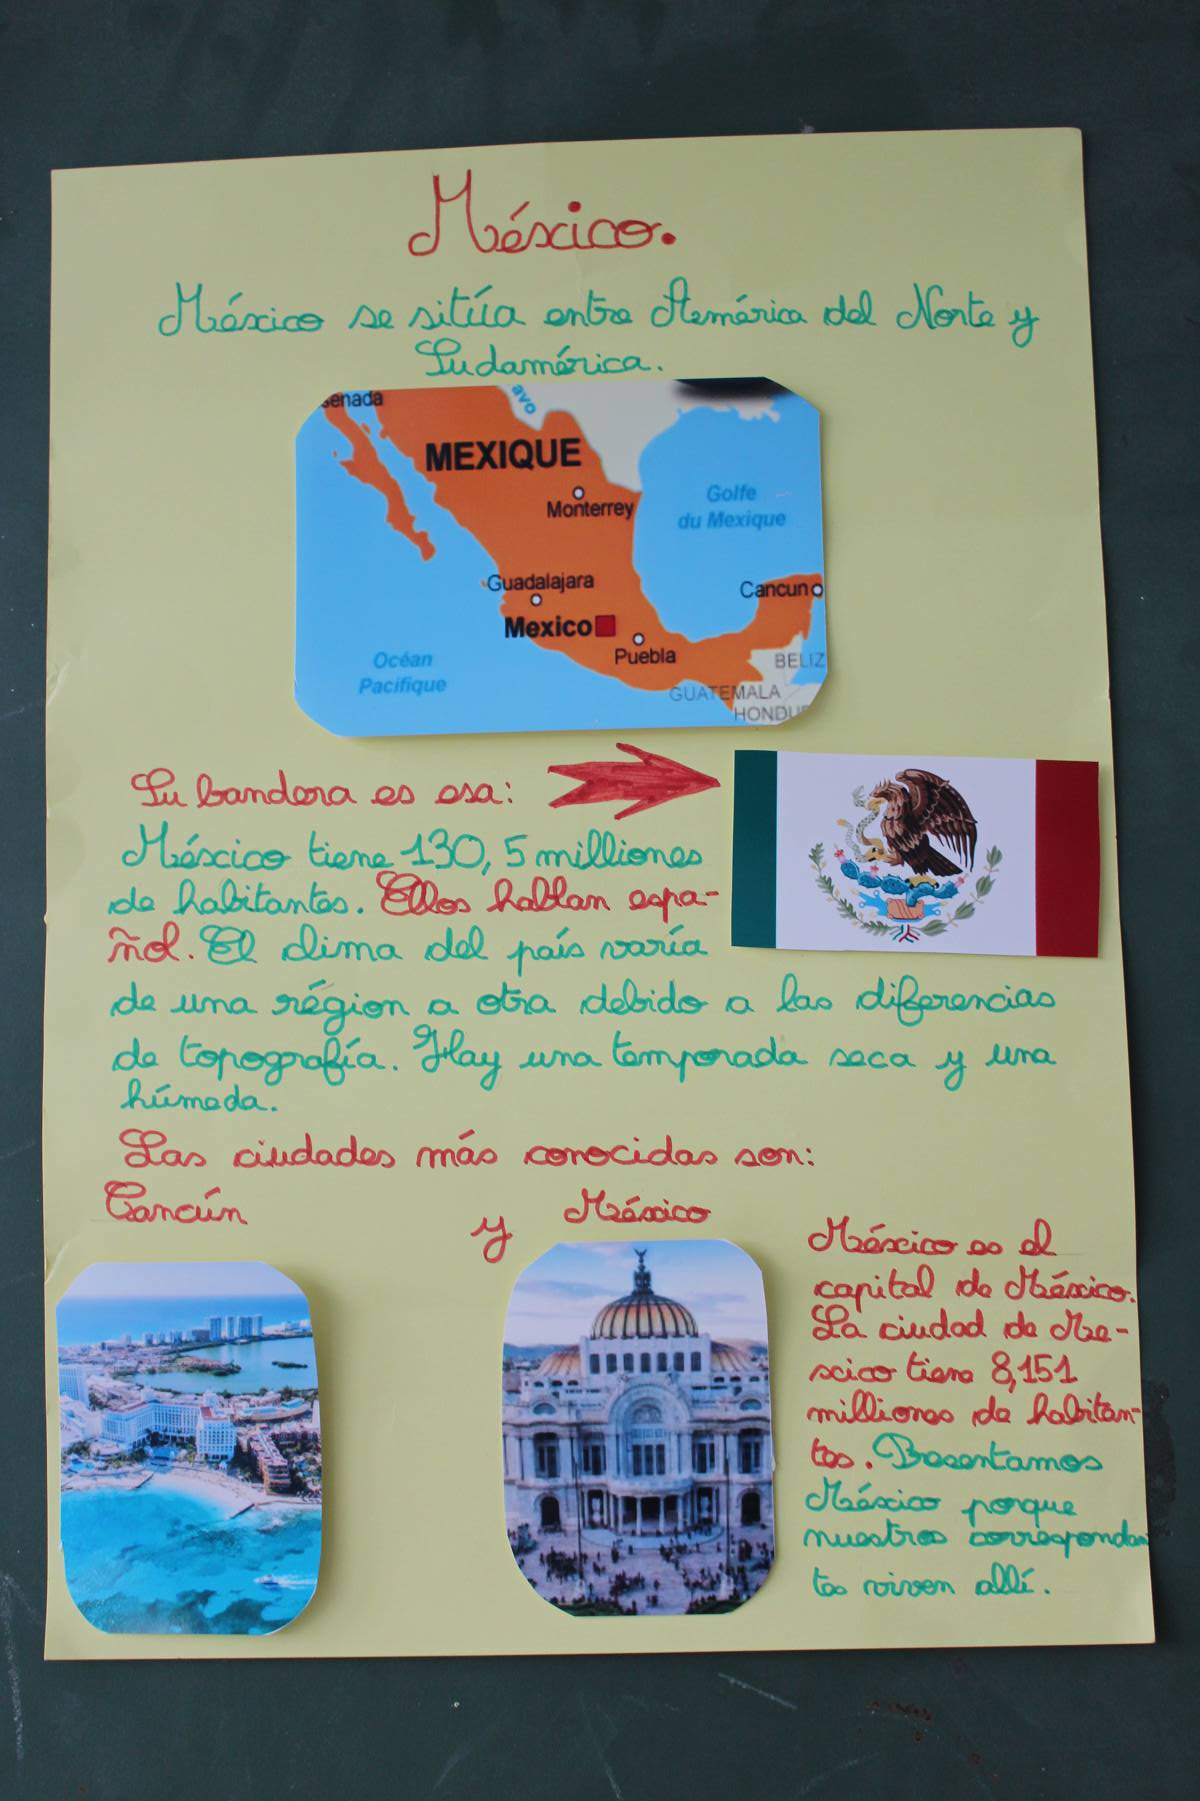 México.
México se sitúa entre América del Norte y
Sudamérica.
enada
avo
MEXIQUE
Monterrey
Golfe
du Mexique
Guadalajara
Cancun
Mexico
Puebla
Océan
Pacifique
BELIZ
GUATEMALA
HONDU
Su bandera es esa:
México tiene 130,5 milliones
de habitantes. Ellos hablan espa-
ñol. El clima del país varía
de una région a otra debido a las diferencias
de topografía. Hay una temporada seca y una
húmeda.
Las ciudades más conocidas son:
Cancún y México
México es el
capital de México.
La ciudad de Mé-
xico tiene 8,151
milliones de habitan-
tes. Presentamos
México porque
nuestros correspondan
tes viven allí.